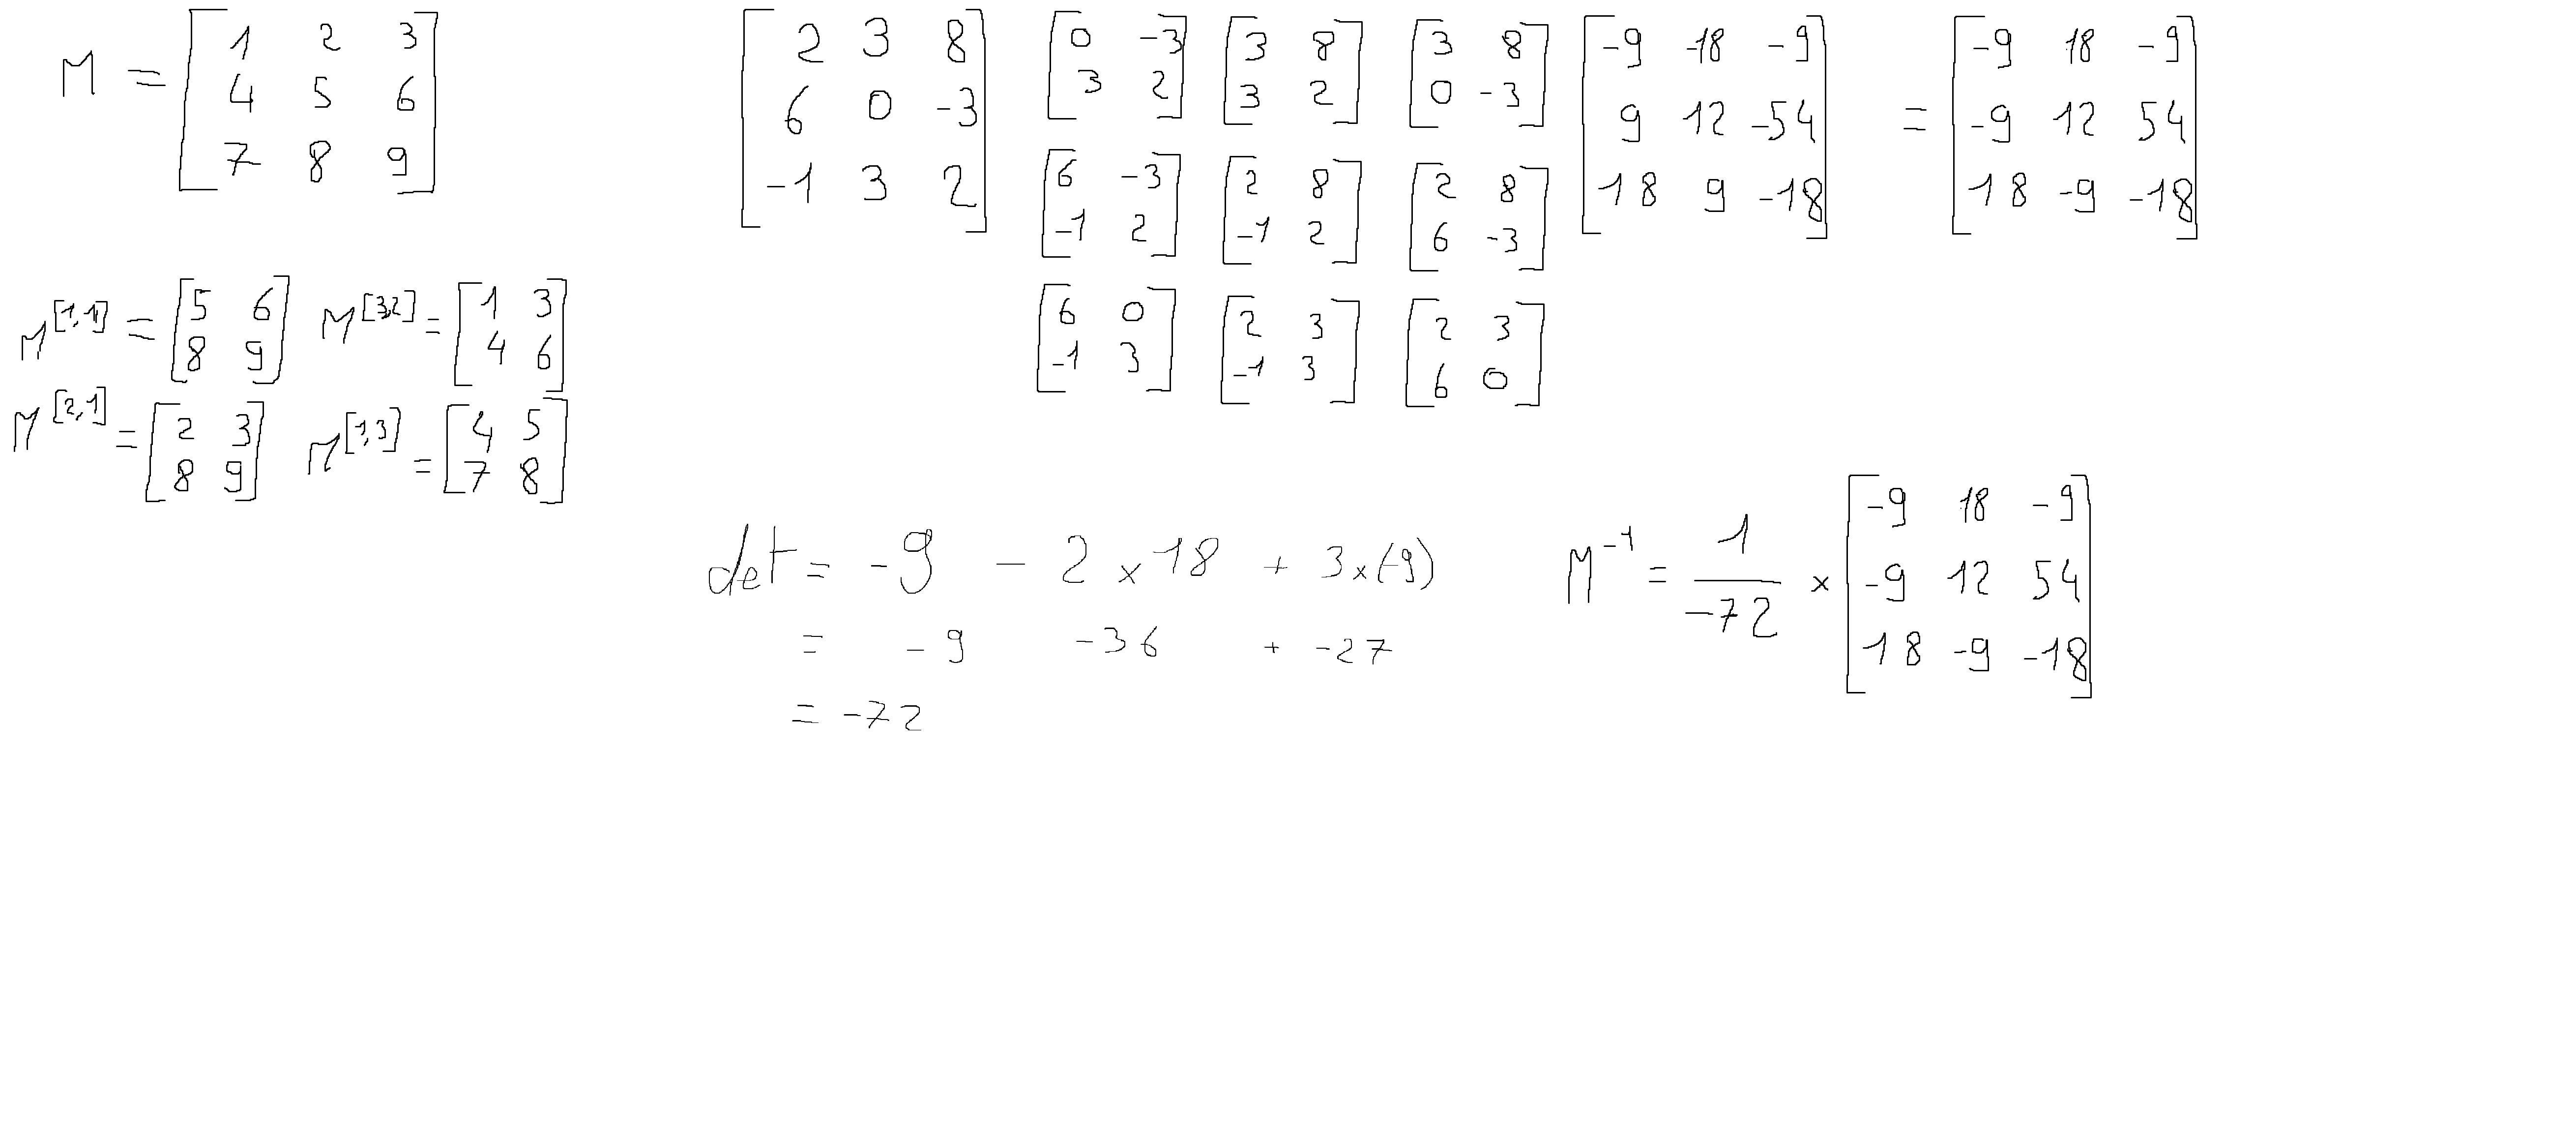 M = [1 2 3
4 5 6
7 8 9]
M[1,1] = [5 6
8 9]
M[3,2] = [1 3
4 6]
M[2,1] = [2 3
8 9]
M[1,3] = [4 5
7 8]
[2 3 8
6 0 -3
-1 3 2]
[0 -3
3 2]
[3 8
3 2]
[3 8
0 -3]
[6 -3
-1 2]
[2 8
-1 2]
[2 8
6 -3]
[6 0
-1 3]
[2 3
-1 3]
[2 3
6 0]
[-9 -18 -9
9 12 -54
18 9 -18]
= [-9 18 -9
-9 12 54
18 -9 -18]
det = -9 - 2 × 18 + 3×(-9)
= -9 -36 + -27
= -72
M⁻¹ = 1
-72
× [-9 18 -9
-9 12 54
18 -9 -18]